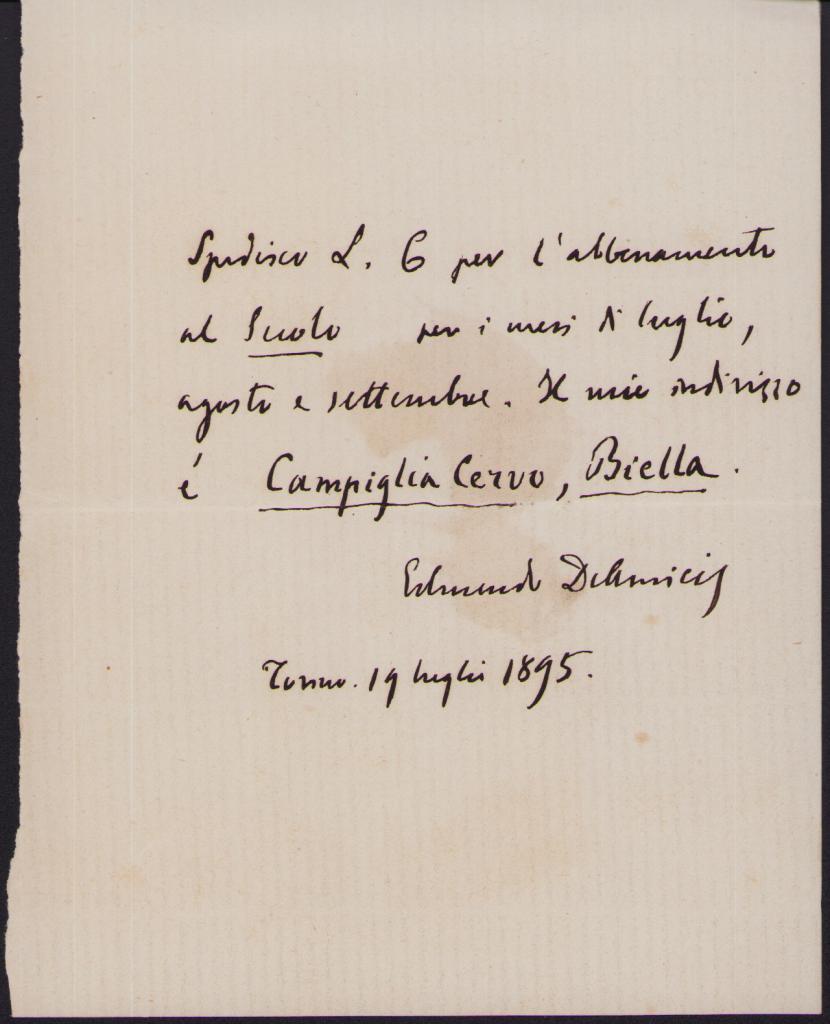 Spedisco L. 6 per l'abbonamento
al Secolo per i mesi di luglio,
agosto e settembre. Il mio indirizzo
é Campiglia Cervo, Biella.
Edmondo DeAmicis
Torino. 19 luglio 1895.